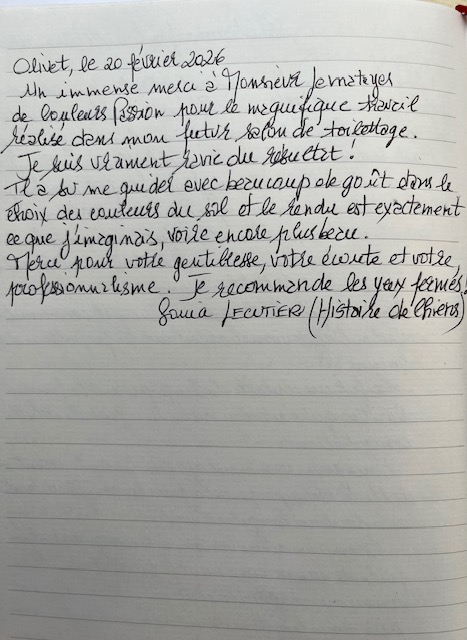 Olivet, le 20 février 2026
Un immense merci à Monsieur Jematayes
de Couleurs Passion pour le magnifique travail
réalisé dans mon futur salon de toilettage.
Je suis vraiment ravie du résultat !
Il a su me guider avec beaucoup de goût dans le
choix des couleurs du sol et le rendu est exactement
ce que j'imaginais, voire encore plus beau.
Merci pour votre gentillesse, votre écoute et votre
professionnalisme. Je recommande les yeux fermés!
Sonia LECUTIER (Histoire de Chiens)